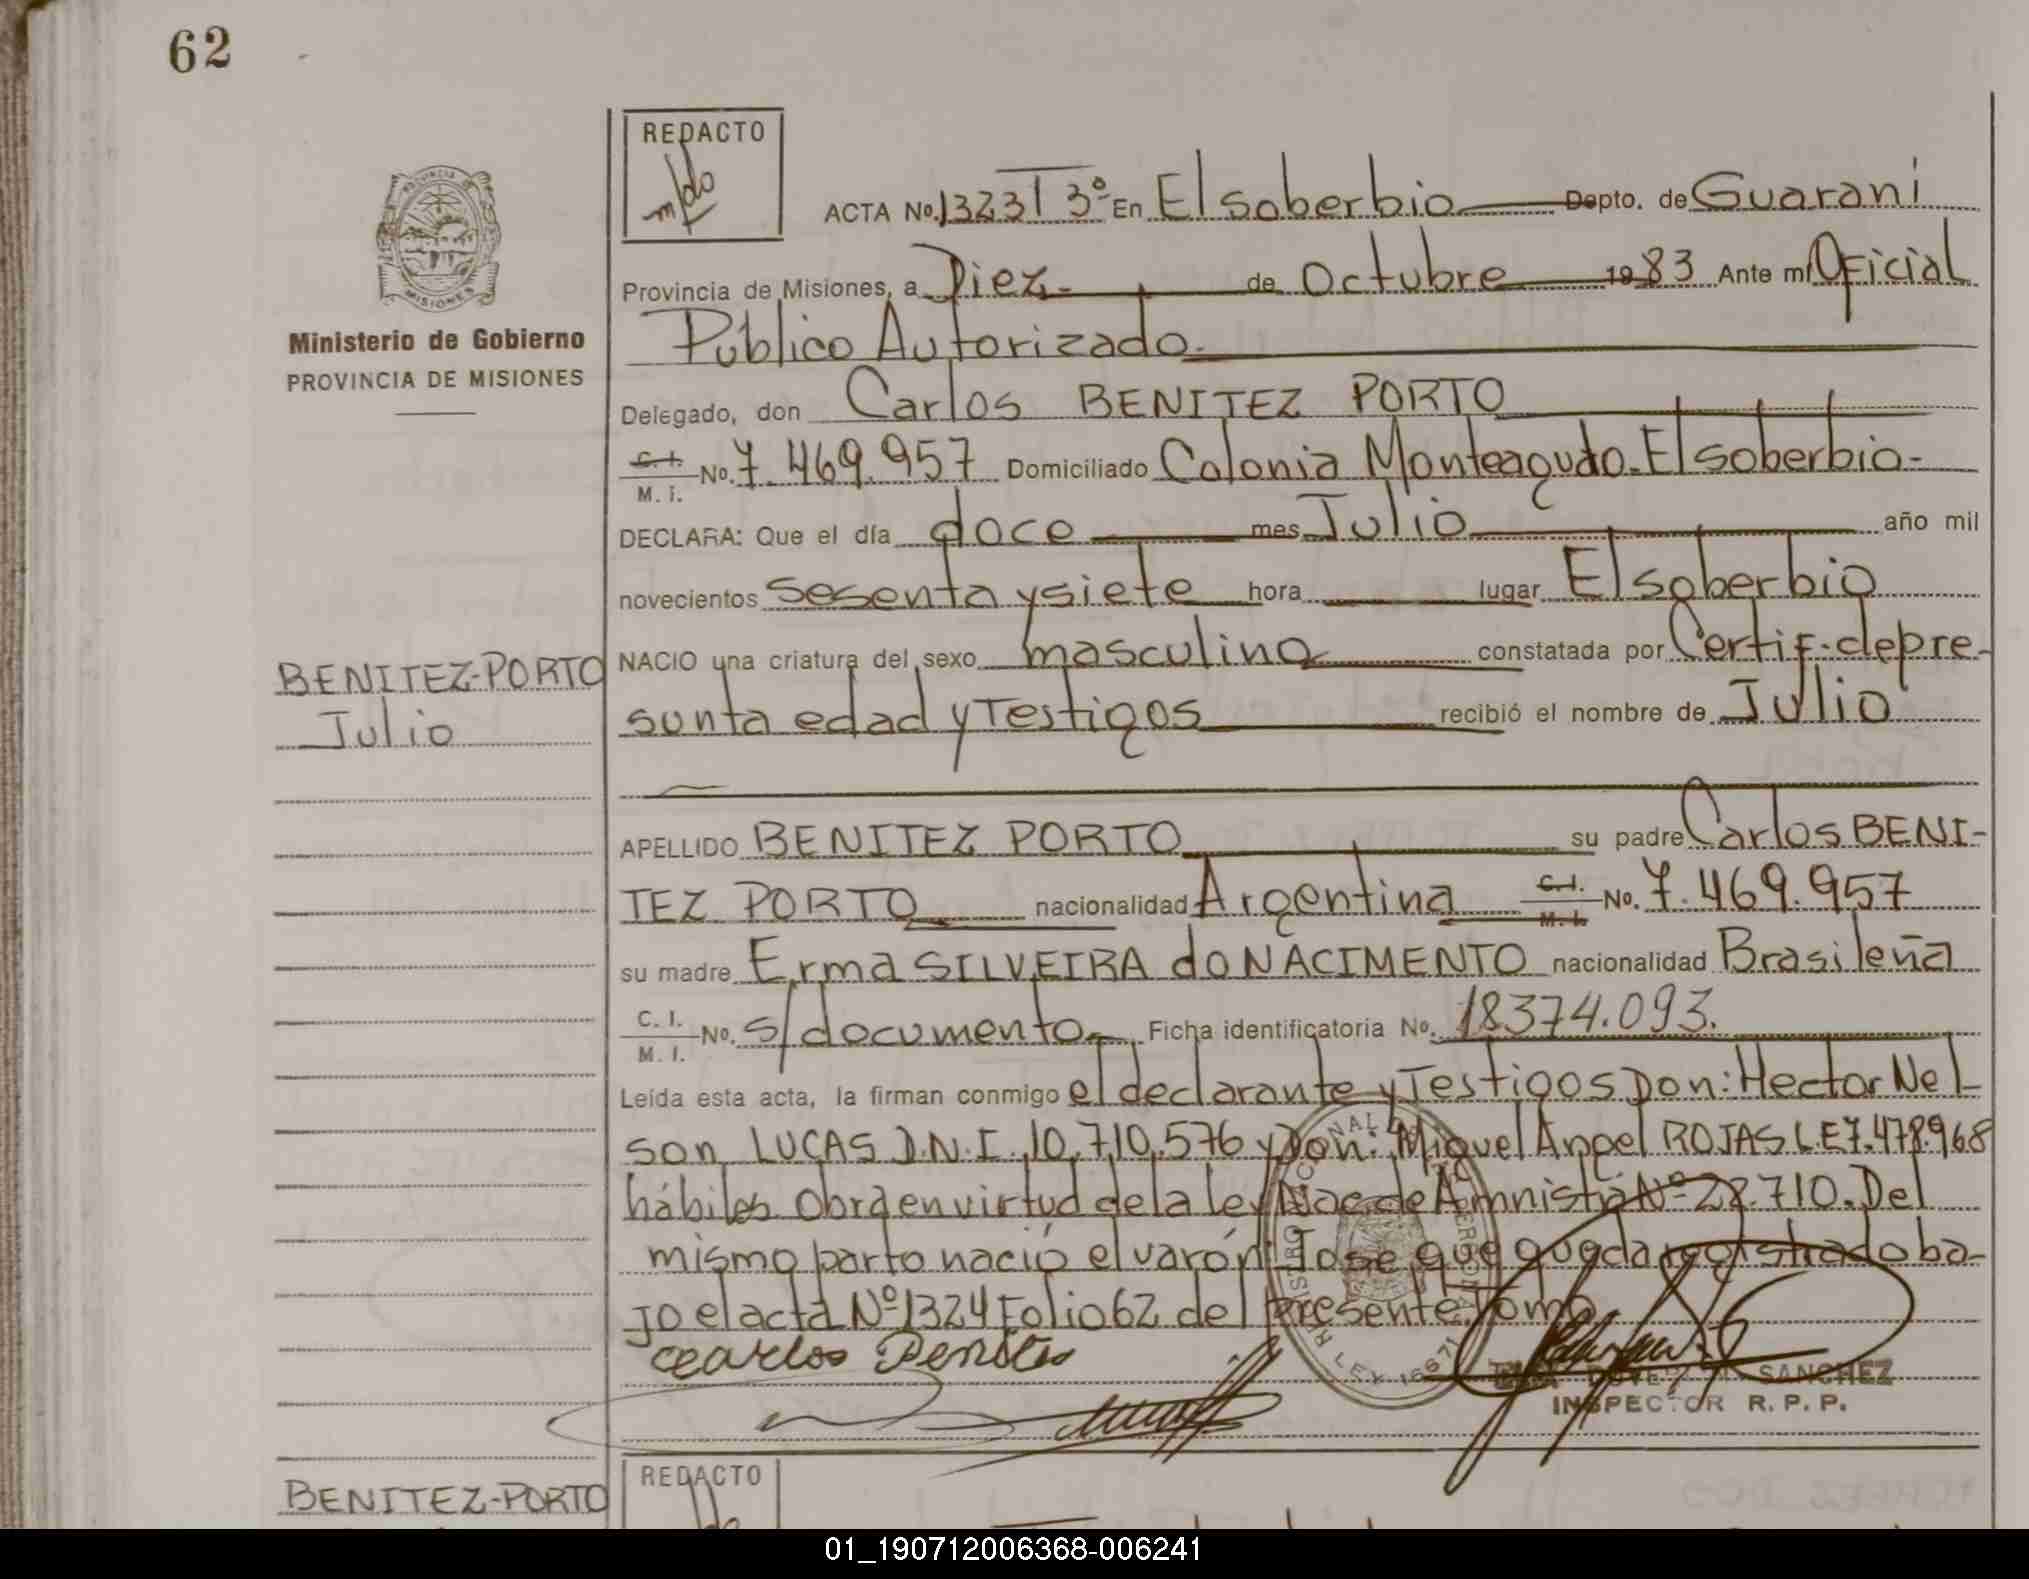 62
REDACTO
ACTA No. 1323 T 3º En El soberbio Depto. de Guarani
Provincia de Misiones, a Diez de Octubre 1983 Ante mí Oficial
Público Autorizado.
PROVINCIA DE MISIONES
Ministerio de Gobierno
PROVINCIA DE MISIONES
Delegado, don Carlos BENITEZ PORTO
C. I.
M. I. No. 7.469.957 Domiciliado Colonia Monteagudo. El soberbio-
DECLARA: Que el día doce mes Julio año mil
novecientos sesenta y siete hora lugar El soberbio
NACIO una criatura del sexo masculino constatada por Certif. de pre-
BENITEZ-PORTO
Julio
sunta edad y Testigos recibió el nombre de Julio
APELLIDO BENITEZ PORTO su padre Carlos BENI-
TEZ PORTO nacionalidad Argentina C. I. M. I. No. 7.469.957
su madre Erma SILVEIRA do NACIMENTO nacionalidad Brasileña
C. I.
M. I. No. s/documento Ficha identificatoria No. 18374.093.
Leída esta acta, la firman conmigo el declarante y Testigos Don: Hector Nel-
son LUCAS D.N.I. 10.710.576 y Don: Miguel Angel ROJAS L.E 7.478.968
hábiles Obra en virtud de la ley Nac. de Amnistia Nº 22.710. Del
mismo parto nació el varón: Jose que queda registrado ba-
jo el acta Nº 1324 Folio 62 del presente Tomo
Carlos Benites
SANCHEZ
INSPECTOR R. P. P.
BENITEZ-PORTO
REDACTO
01_190712006368-006241